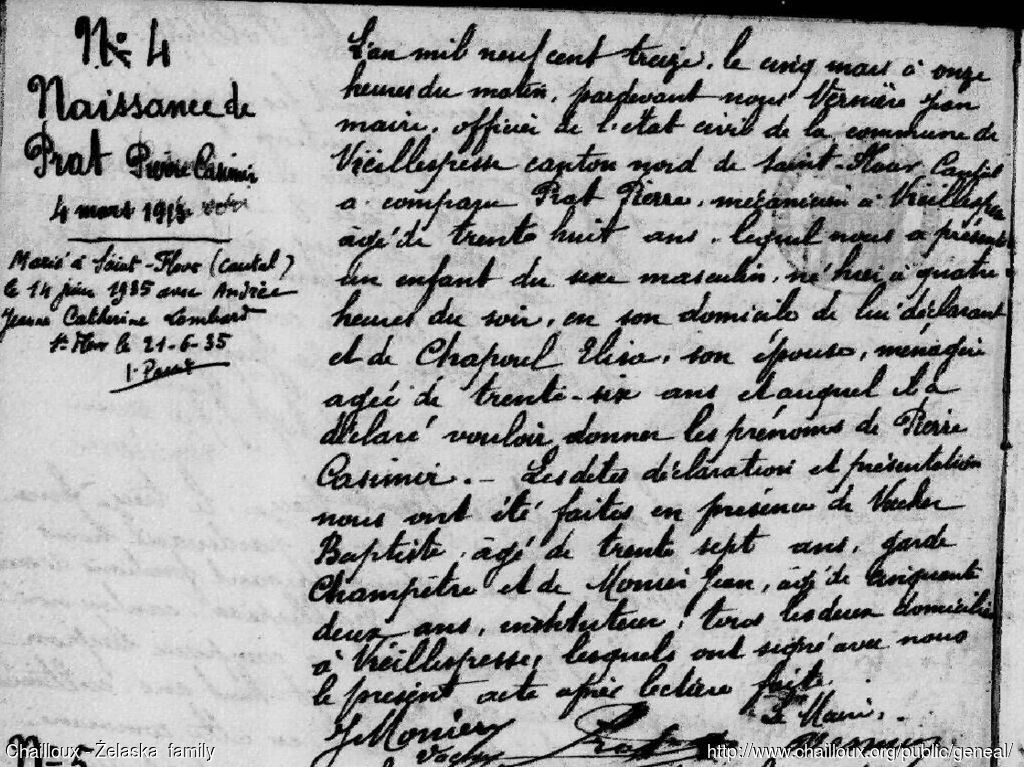 N° 4
Naissance de
Prat Pierre Casimir
4 mars 1913
Marié à Saint-Flour (Cantal)
le 14 juin 1935 avec Andrée
Jeanne Catherine Lombard
St Flour le 21-6-35
L'an mil neuf cent treize, le cinq mars à onze
heures du matin, pardevant nous Vernière Jean
maire, officier de l'état civil de la commune de
Vieillespesse canton nord de Saint-Flour, Cantal
a comparu Prat Pierre, mécanicien à Vieillespesse
âgé de trente huit ans, lequel nous a présenté
un enfant du sexe masculin, né hier à quatre
heures du soir, en son domicile de lui déclarant
et de Chaporel Elisa, son épouse, ménagère
agée de trente-six ans et auquel il a
déclaré vouloir donner les prénoms de Pierre
Casimir. - Les dites déclaration et présentation
nous ont été faites en présence de Vacher
Baptiste, âgé de trente sept ans, garde
Champêtre et de Monier Jean, âgé de cinquante
deux ans, instituteur, tous les deux domiciliés
à Vieillespesse, lesquels ont signé avec nous
le présent acte après lecture faite.
Le Maire,
J Monier Vacher Prat Vernière
N° 5
Chailloux - Żelaska family
http://www.chailloux.org/public/geneal/